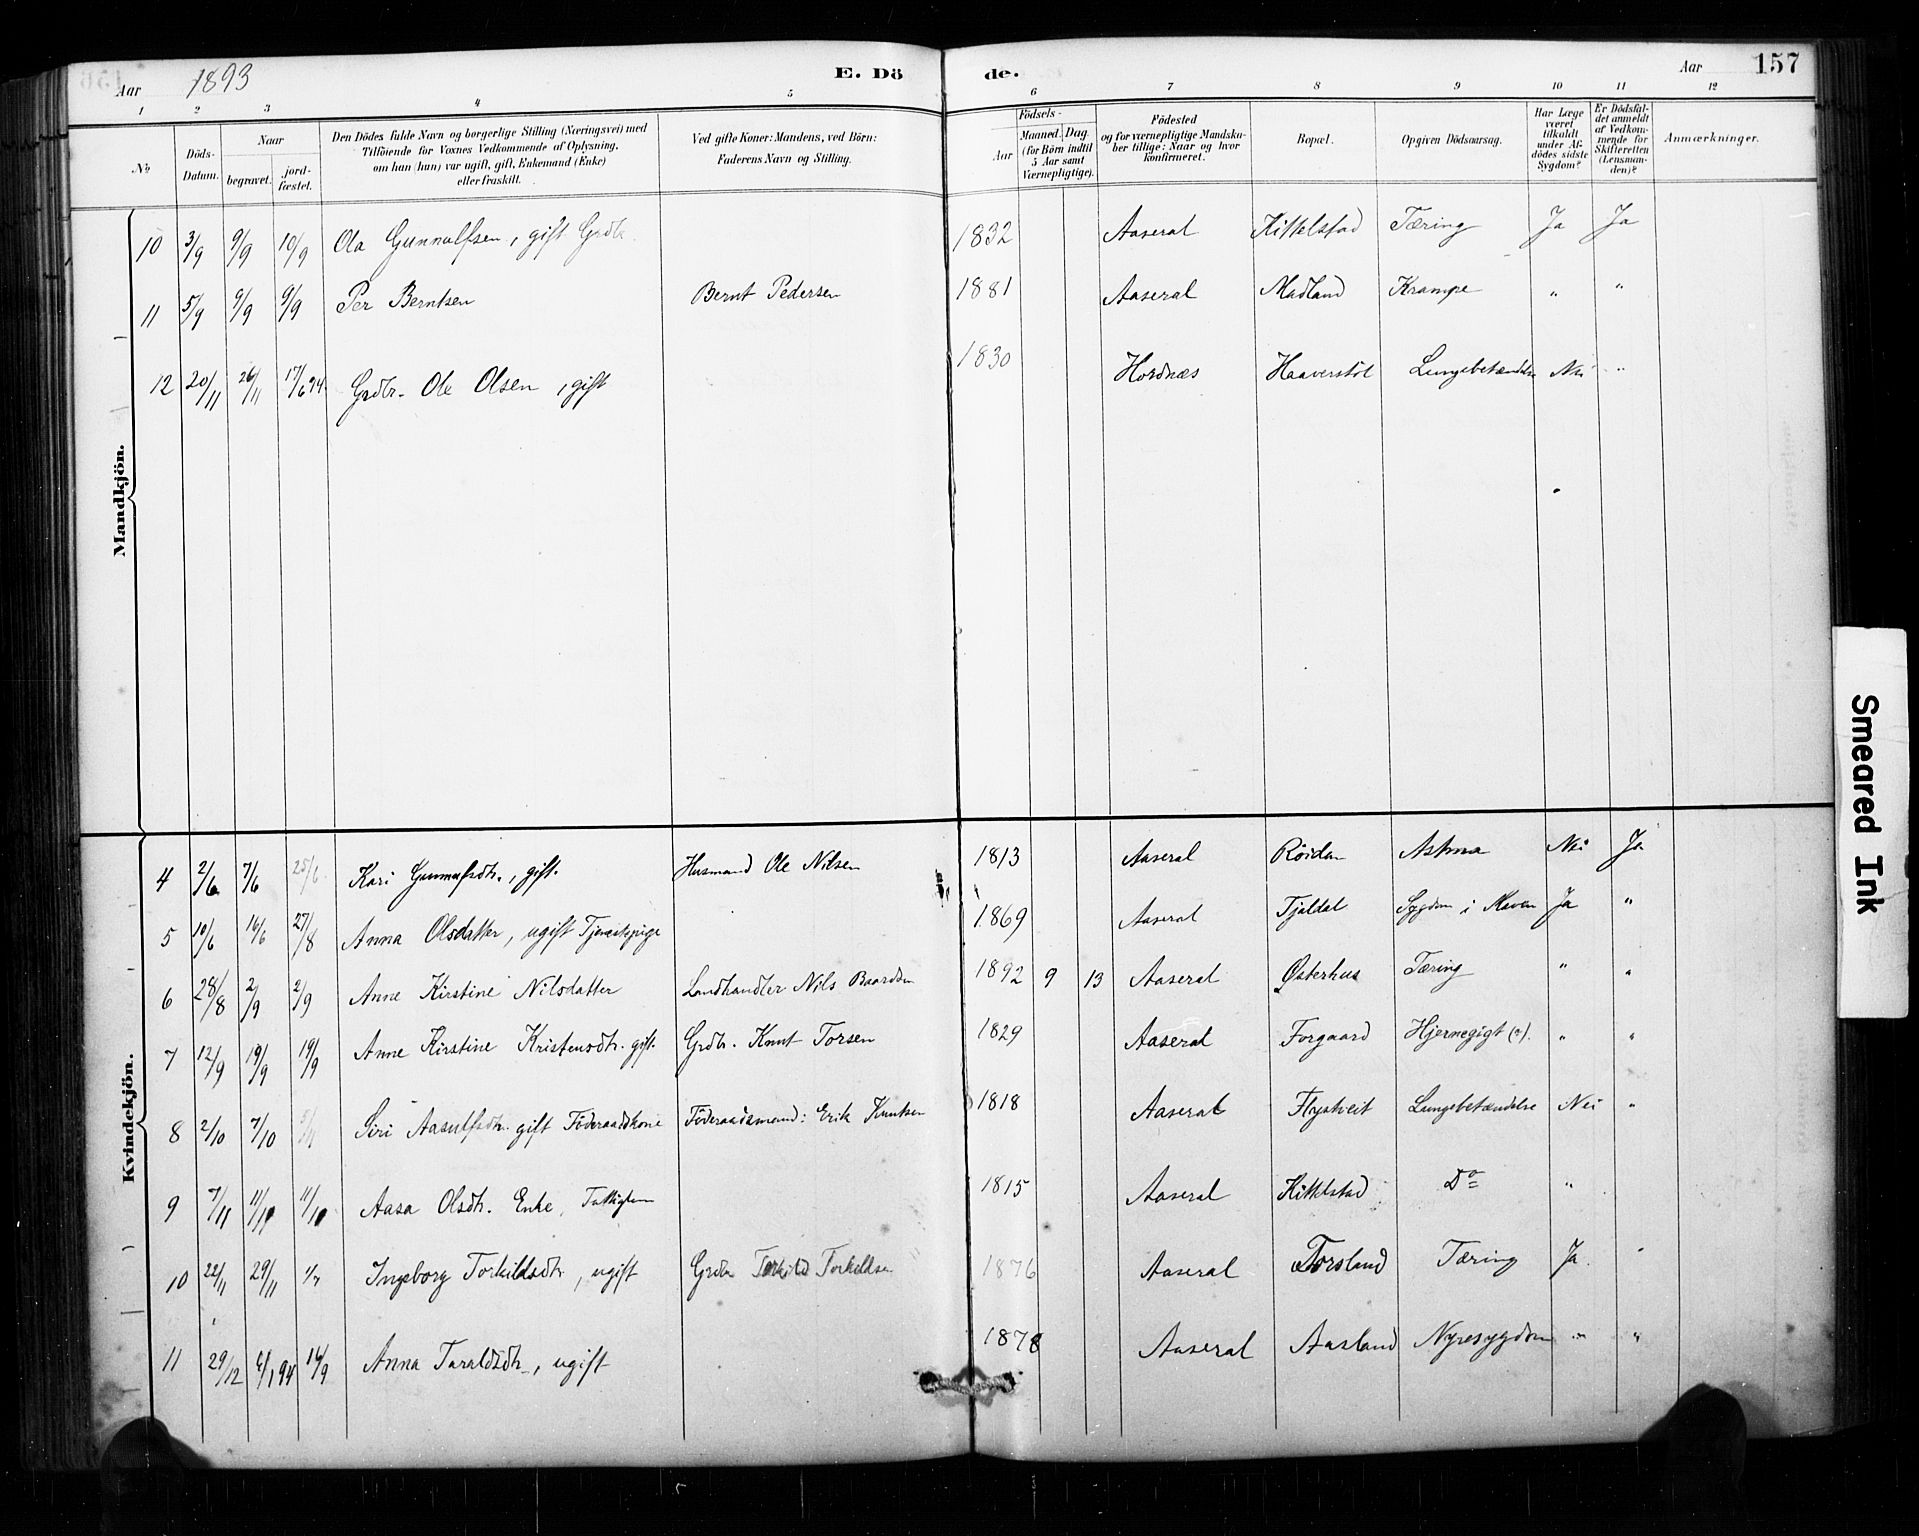 Aar 1893 E. Dö de. Aar 157
1 2 3 4 5 6 7 8 9 10 11 12
No
Döds-Datum.
Naar begravet. jordfæstet.
Den Dödes fulde Navn og borgerlige Stilling (Næringsvei) med
Tilföiende for Voxnes Vedkommende af Oplysning,
om han (hun) var ugift, gift, Enkemand (Enke)
eller fraskilt.
Ved gifte Koner: Mandens, ved Börn:
Faderens Navn og Stilling.
Födsels-
Aar Maaned. Dag.
(for Börn indtil 5 Aar samt Værnepligtige).
Födested
og for værnepligtige Mandskaber tillige: Naar og hvor konfirmeret.
Bopæl.
Opgiven Dödsaarsag.
Har Læge været tilkaldt under Afdödes sidste Sygdom?
Er Dödsfaldet anmeldt af Vedkommende for Skifteretten (Lensmanden)?
Anmærkninger.
Mandkjön.
10 3/9 9/9 10/9 Ola Gunnulfsen, gift Grdb. 1832 Aaseral Kittelstad Tæring Ja Ja
11 5/9 9/9 9/9 Per Berntsen Bernt Pedersen 1881 Aaseral Madland Krampe " "
12 20/11 26/11 17/6 94 Grdbr. Ole Olsen, gift 1830 Hordnæs Haaverstöl Lungebetændelse Nei "
Kvindekjön.
4 2/6 7/6 25/6 Kari Gunnulfsdtr., gift. Husmand Ole Nilsen 1813 Aaseral Röidan Astma Nei Ja
5 10/6 16/6 27/8 Anna Olsdatter, ugift Tjenestepige 1869 Aaseral Tjaldal Sygdom i Maven Ja "
6 28/8 2/9 2/9 Anne Kirstine Nilsdatter Landhandler Nils Baardsen 1892 9 13 Aaseral Østerhus Tæring " "
7 12/9 19/9 19/9 Anne Kirstine Kristensdtr. gift. Grdbr. Knut Torsen 1829 Aaseral Forgaard Hjernegigt (?). " "
8 2/10 7/10 Siri Aasulfsdtr. gift Föderaadskone Föderaadsmand: Erik Knutsen 1818 Aaseral Flystveit Lungebetændelse Nei "
9 7/11 11/10 11/10 Aasa Olsdtr. Enke, Fattiglem 1815 Aaseral Kittelstad Do "
10 22/11 29/11 Ingeborg Torkildsdtr, ugift Grdbr Torkild Torkildsen 1876 Aaseral Torsland Tæring Ja "
11 29/12 6/1 94 16/9 Anna Taraldsdtr., ugift 1878 Aaseral Aasland Nyresygdom " "
Smeared Ink